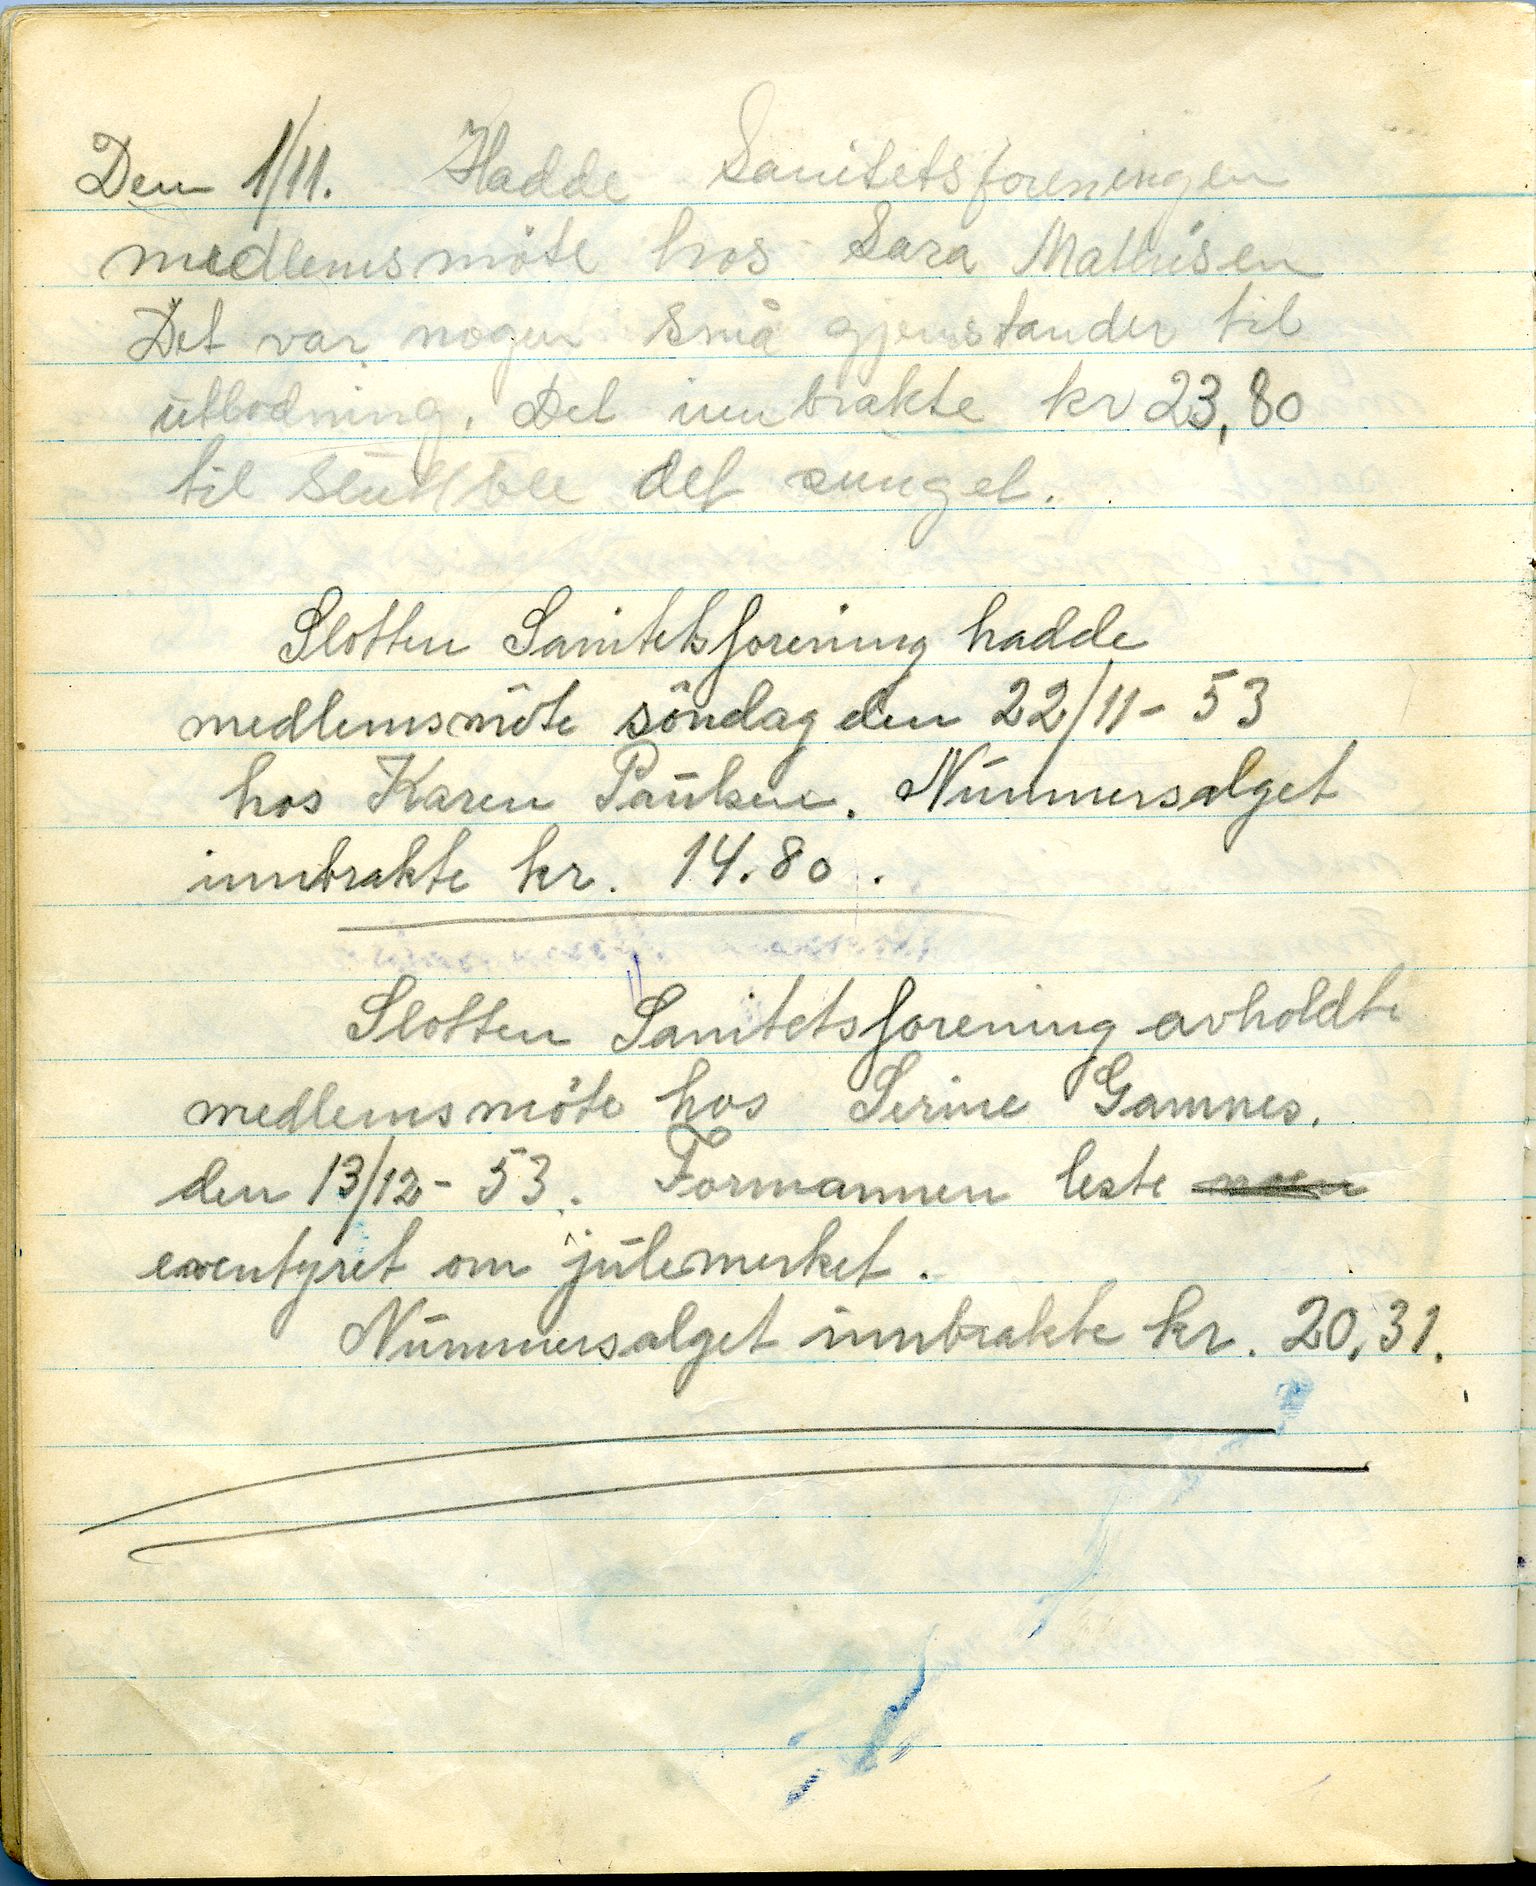 Den 1/11. Hadde Sanitetsforeningen
medlemsmöte hos Sara Mathisen
Det var nogen små gjenstander til
utlodning. Det inn brakte kr 23,80
til slutt ble det sunget.
Slotten Sanitetsforening hadde
medlemsmöte söndag den 22/11- 53
hos Karen Paulsen. Nummersalget
innbrakte kr. 14.80.
Slotten Sanitetsforening avholdte
medlemsmöte hos Serine Gamnes.
den 13/12- 53. Formannen leste
eventyret om julemerket.
Nummersalget innbrakte kr. 20,31.